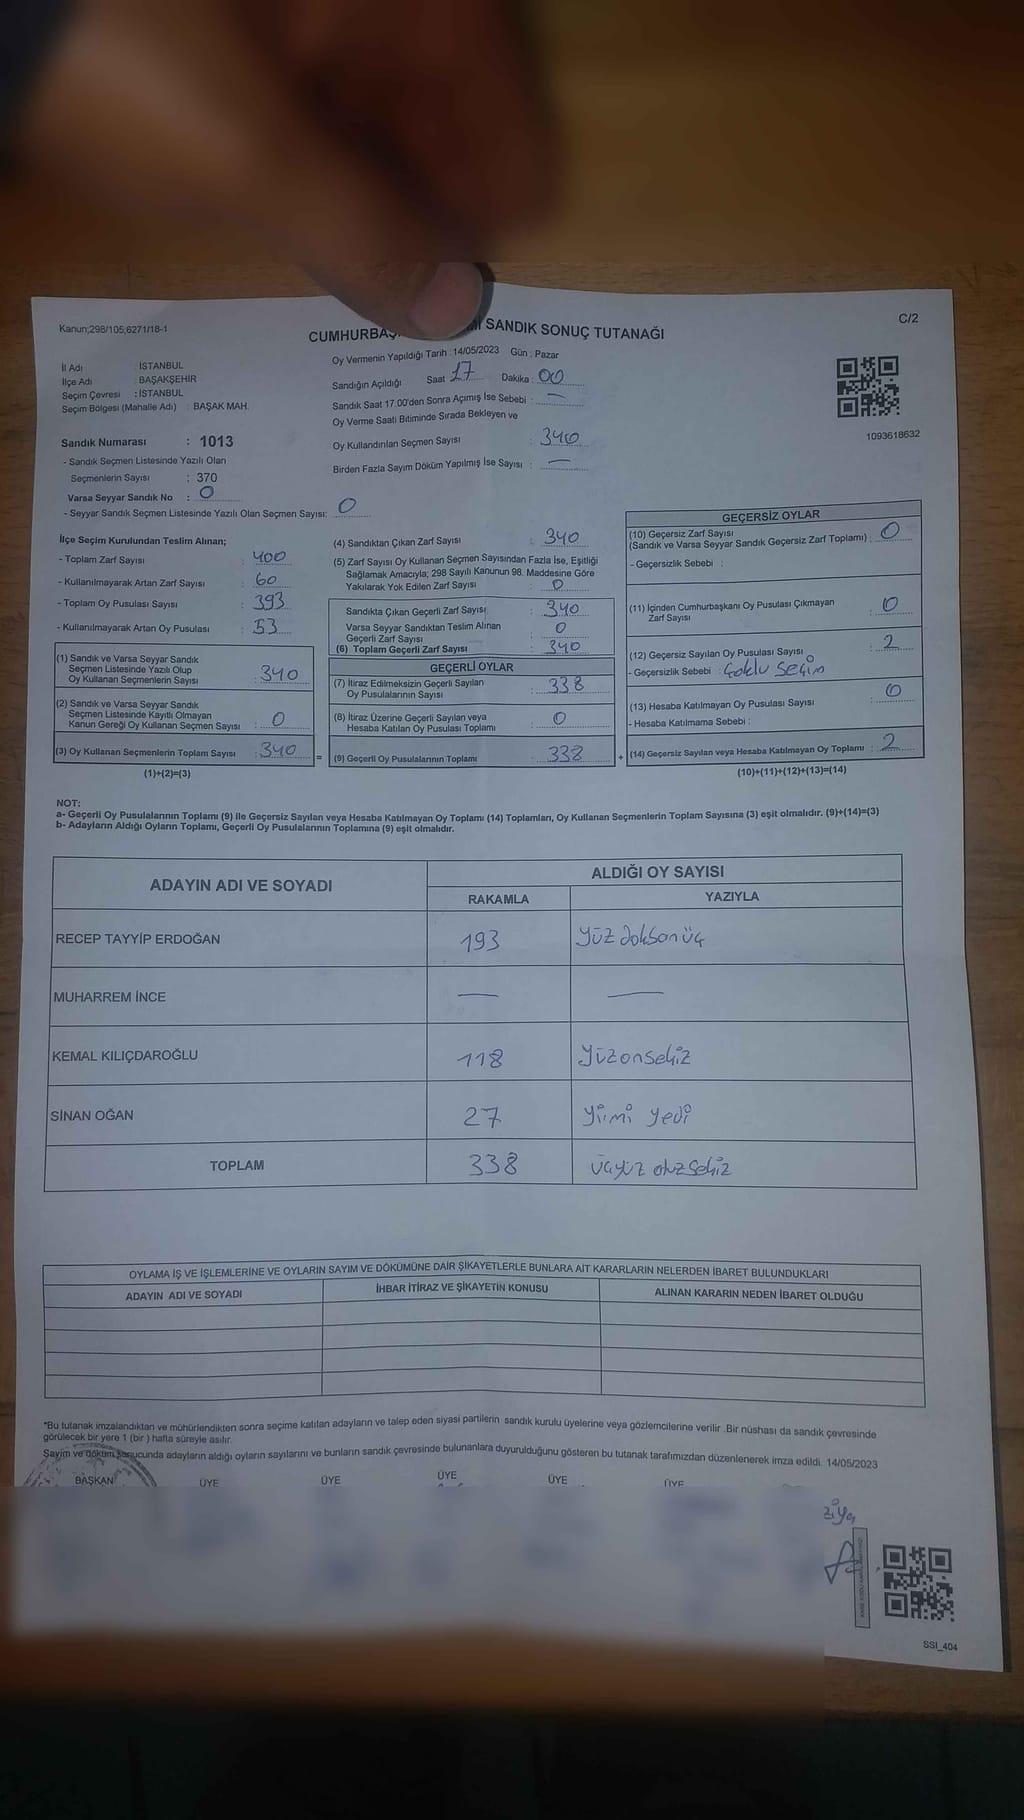 Kanun;298/105;6271/18-1
C/2
CUMHURBAŞ Mİ SANDIK SONUÇ TUTANAĞI
İl Adı : İSTANBUL
İlçe Adı : BAŞAKŞEHİR
Seçim Çevresi : İSTANBUL
Seçim Bölgesi (Mahalle Adı) : BAŞAK MAH.
Oy Vermenin Yapıldığı Tarih : 14/05/2023 Gün : Pazar
Sandığın Açıldığı Saat 17 Dakika : 00
Sandık Saat 17.00'den Sonra Açımış İse Sebebi : —
Oy Verme Saati Bitiminde Sırada Bekleyen ve
Oy Kullandırılan Seçmen Sayısı : 340
Birden Fazla Sayım Döküm Yapılmış İse Sayısı : —
1093618632
Sandık Numarası : 1013
- Sandık Seçmen Listesinde Yazılı Olan
Seçmenlerin Sayısı : 370
Varsa Seyyar Sandık No : 0
- Seyyar Sandık Seçmen Listesinde Yazılı Olan Seçmen Sayısı: 0
İlçe Seçim Kurulundan Teslim Alınan;
- Toplam Zarf Sayısı : 400
- Kullanılmayarak Artan Zarf Sayısı : 60
- Toplam Oy Pusulası Sayısı : 393
- Kullanılmayarak Artan Oy Pusulası : 53
(1) Sandık ve Varsa Seyyar Sandık
Seçmen Listesinde Yazılı Olup
Oy Kullanan Seçmenlerin Sayısı : 340
(2) Sandık ve Varsa Seyyar Sandık
Seçmen Listesinde Kayıtlı Olmayan
Kanun Gereği Oy Kullanan Seçmen Sayısı : 0
(3) Oy Kullanan Seçmenlerin Toplam Sayısı : 340 =
(1)+(2)=(3)
(4) Sandıktan Çıkan Zarf Sayısı : 340
(5) Zarf Sayısı Oy Kullanan Seçmen Sayısından Fazla İse, Eşitliği
Sağlamak Amacıyla; 298 Sayılı Kanunun 98. Maddesine Göre
Yakılarak Yok Edilen Zarf Sayısı : 0
Sandıkta Çıkan Geçerli Zarf Sayısı : 340
Varsa Seyyar Sandıktan Teslim Alınan
Geçerli Zarf Sayısı : 0
(6) Toplam Geçerli Zarf Sayısı : 340
GEÇERLİ OYLAR
(7) İtiraz Edilmeksizin Geçerli Sayılan
Oy Pusulalarının Sayısı : 338
(8) İtiraz Üzerine Geçerli Sayılan veya
Hesaba Katılan Oy Pusulası Toplamı : 0
(9) Geçerli Oy Pusulalarının Toplamı : 338 +
GEÇERSİZ OYLAR
(10) Geçersiz Zarf Sayısı
(Sandık ve Varsa Seyyar Sandık Geçersiz Zarf Toplamı) : 0
- Geçersizlik Sebebi :
(11) İçinden Cumhurbaşkanı Oy Pusulası Çıkmayan
Zarf Sayısı : 0
(12) Geçersiz Sayılan Oy Pusulası Sayısı : 2
- Geçersizlik Sebebi : Çoklu Seçim
(13) Hesaba Katılmayan Oy Pusulası Sayısı : 0
- Hesaba Katılmama Sebebi :
(14) Geçersiz Sayılan veya Hesaba Katılmayan Oy Toplamı : 2
(10)+(11)+(12)+(13)=(14)
NOT:
a- Geçerli Oy Pusulalarının Toplamı (9) ile Geçersiz Sayılan veya Hesaba Katılmayan Oy Toplamı (14) Toplamları, Oy Kullanan Seçmenlerin Toplam Sayısına (3) eşit olmalıdır. (9)+(14)=(3)
b- Adayların Aldığı Oyların Toplamı, Geçerli Oy Pusulalarının Toplamına (9) eşit olmalıdır.
ADAYIN ADI VE SOYADI ALDIĞI OY SAYISI
RAKAMLA YAZIYLA
RECEP TAYYİP ERDOĞAN 193 Yüz doksan üç
MUHARREM İNCE — —
KEMAL KILIÇDAROĞLU 118 Yüzonsekiz
SİNAN OĞAN 27 Yirmi yedi
TOPLAM 338 üçyüz otuz sekiz
OYLAMA İŞ VE İŞLEMLERİNE VE OYLARIN SAYIM VE DÖKÜMÜNE DAİR ŞİKAYETLERLE BUNLARA AİT KARARLARIN NELERDEN İBARET BULUNDUKLARI
ADAYIN ADI VE SOYADI İHBAR İTİRAZ VE ŞİKAYETİN KONUSU ALINAN KARARIN NEDEN İBARET OLDUĞU
*Bu tutanak imzalandıktan ve mühürlendikten sonra seçime katılan adayların ve talep eden siyasi partilerin sandık kurulu üyelerine veya gözlemcilerine verilir .Bir nüshası da sandık çevresinde
görülecek bir yere 1 (bir ) hafta süreyle asılır.
Sayım ve döküm sonucunda adayların aldığı oyların sayılarını ve bunların sandık çevresinde bulunanlara duyurulduğunu gösteren bu tutanak tarafımızdan düzenlenerek imza edildi. 14/05/2023
BAŞKAN ÜYE ÜYE ÜYE ÜYE ÜYE
ziya
SSI_404